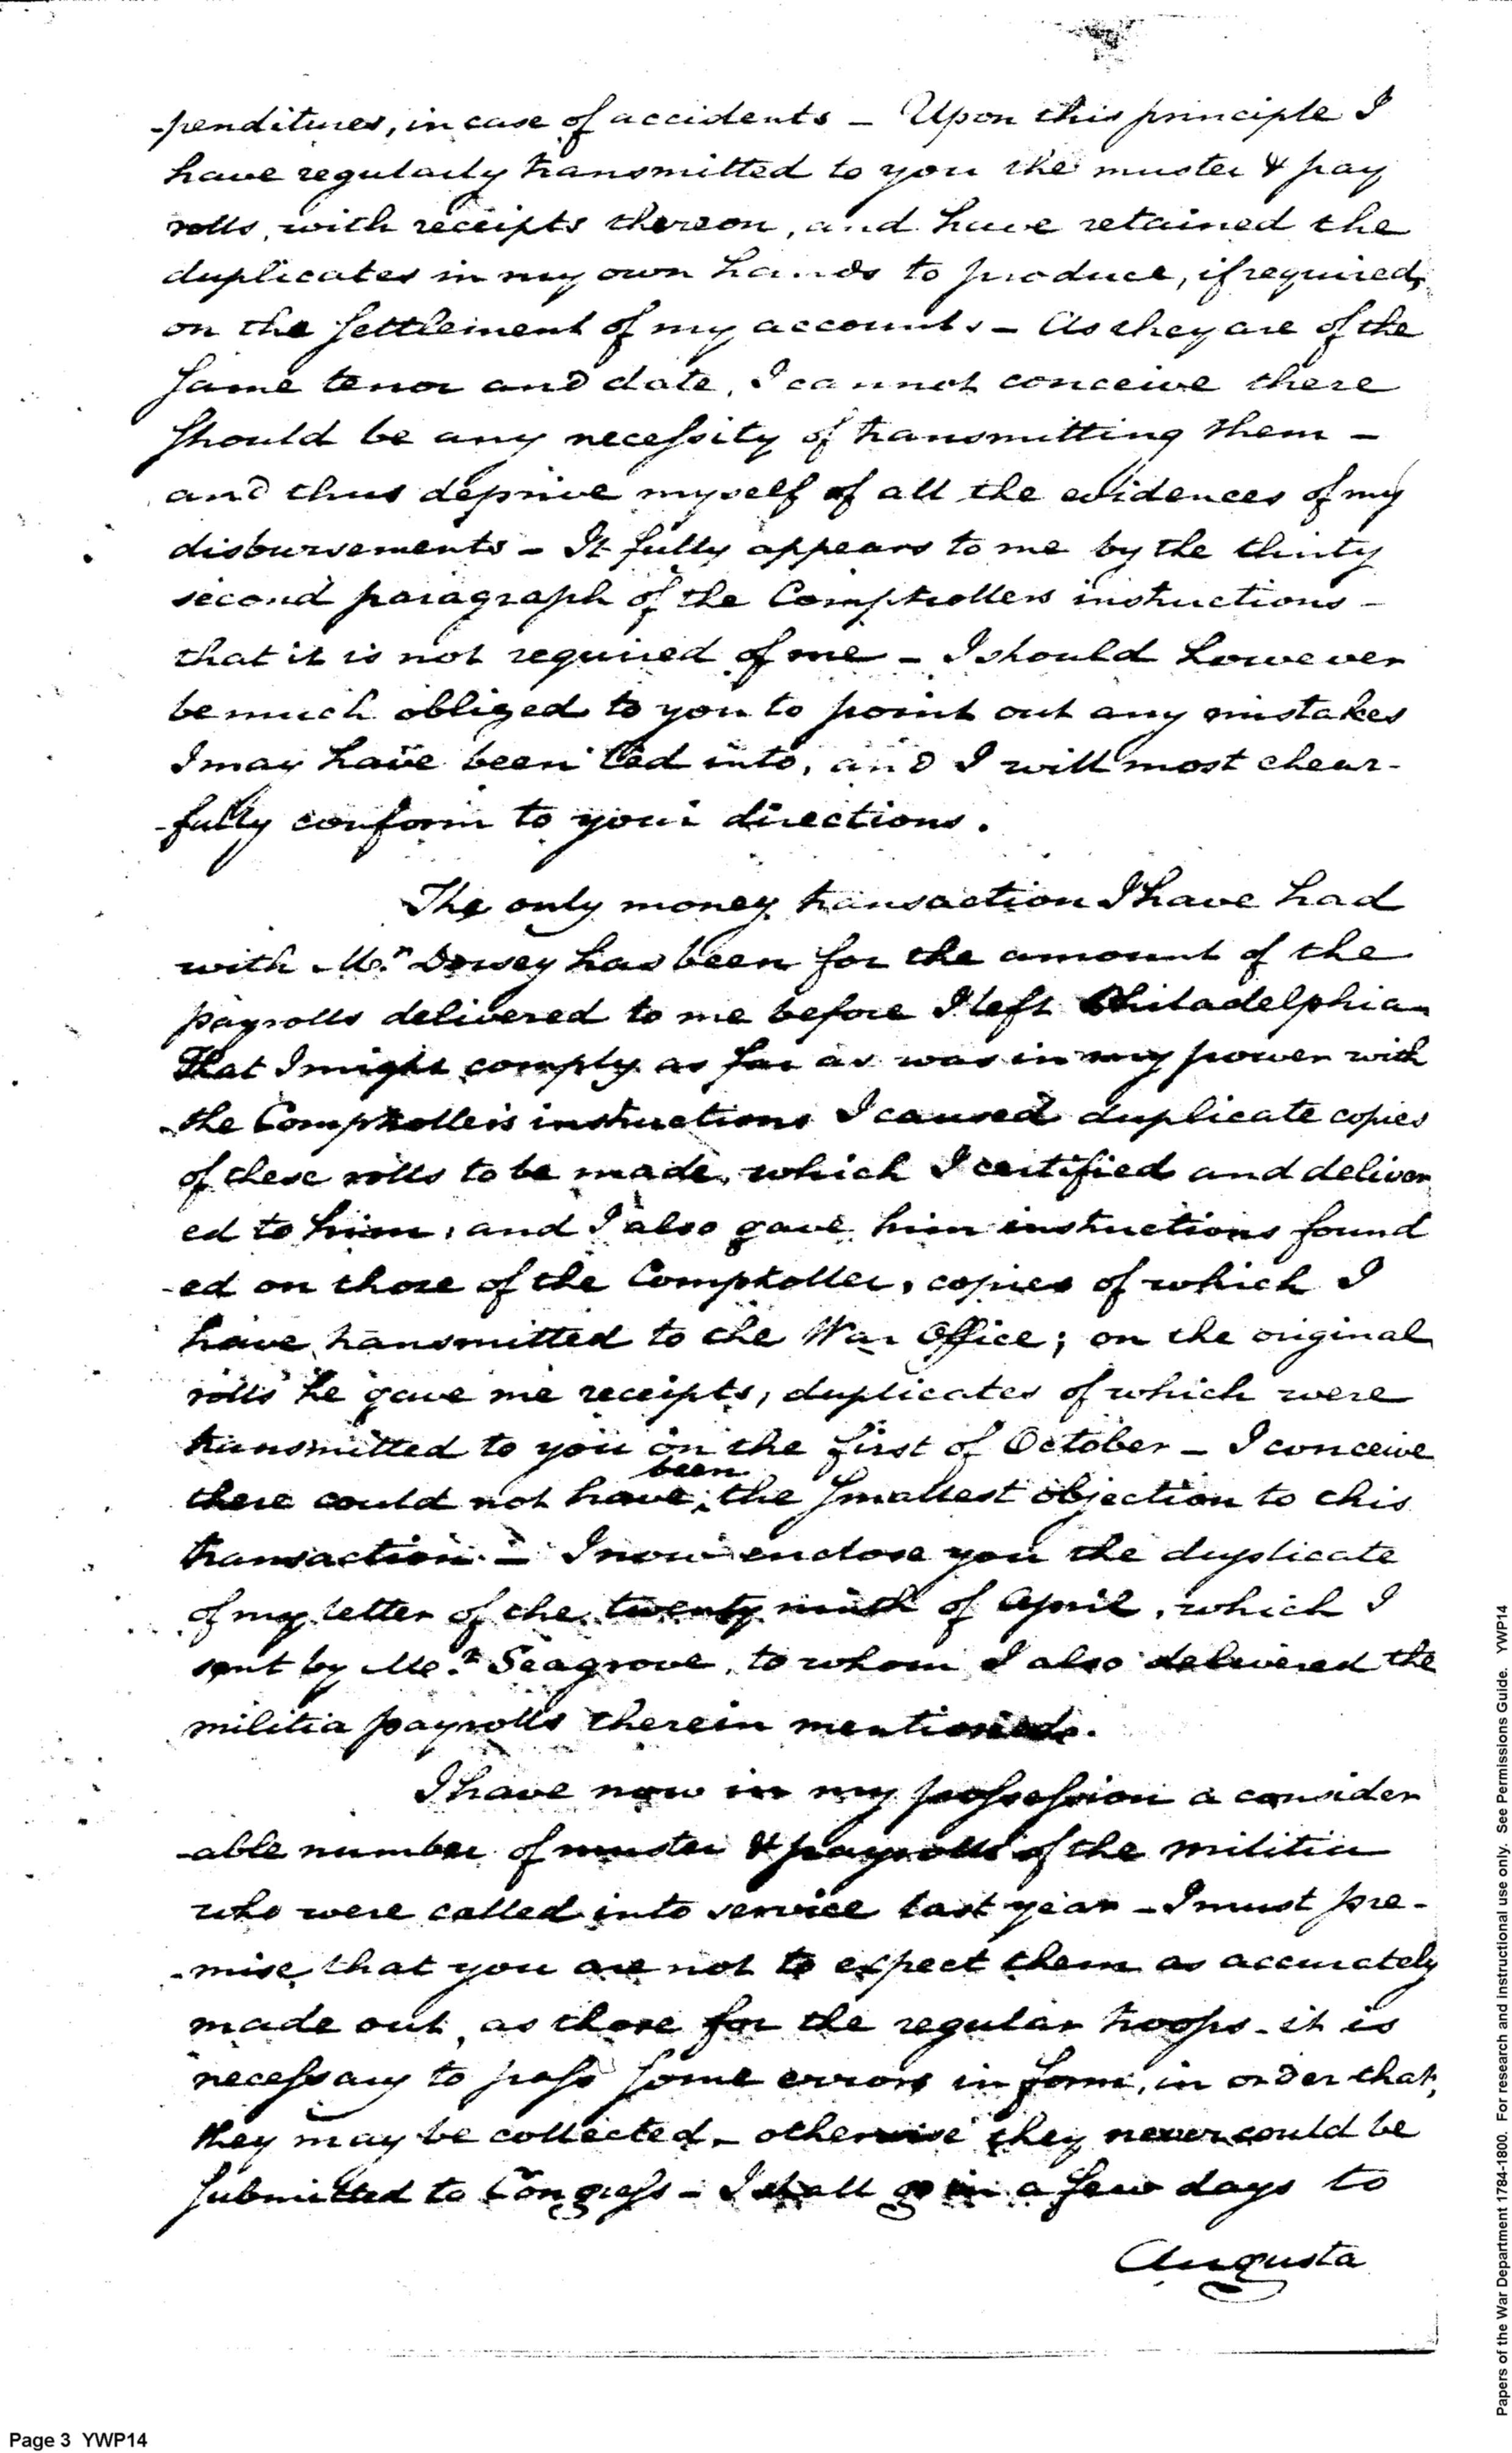 -penditures, in case of accidents – Upon this principle I
have regularly transmitted to you the muster & pay
rolls, with receipts thereon, and have retained the
duplicates in my own hands to produce, if required,
on the settlement of my accounts – As they are of the
same tenor and date, I cannot conceive there
should be any necessity of transmitting them –
and thus deprive myself of all the evidences of my
disbursements – It fully appears to me by the thirty
second paragraph of the Comptrollers instructions –
that it is not required of me – I should however
be much obliged to you to point out any mistakes
I may have been led into, and I will most chear-
-fully conform to your directions.
The only money transaction I have had
with Mr. Dowsey has been for the amount of the
payrolls delivered to me before I left Philadelphia –
That I might comply as far as was in my power with
the Comptrollers instructions I caused duplicate copies
of these rolls to be made, which I certified and deliver
ed to him, and I also gave him instructions found
-ed on those of the Comptroller, copies of which I
have transmitted to the War Office; on the original
rolls he gave me receipts, duplicates of which were
transmitted to you on the first of October – I conceive
there could not have been the smallest objection to this
transaction – I now enclose you the duplicate
of my letter of the twenty ninth of April, which I
sent by Mr. Seagrove, to whom I also delivered the
militia payrolls therein mentioned.
I have now in my possession a consider
-able number of muster & payrolls of the militia
who were called into service last year – I must pre-
-mise that you are not to expect them as accurately
made out, as those for the regular troops – it is
necessary to pass some errors in form, in order that,
they may be collected – otherwise they never could be
submitted to Congress – I shall go in a few days to
Augusta
Page 3 YWP14
Papers of the War Department 1784-1800. For research and instructional use only. See Permissions Guide. YWP14